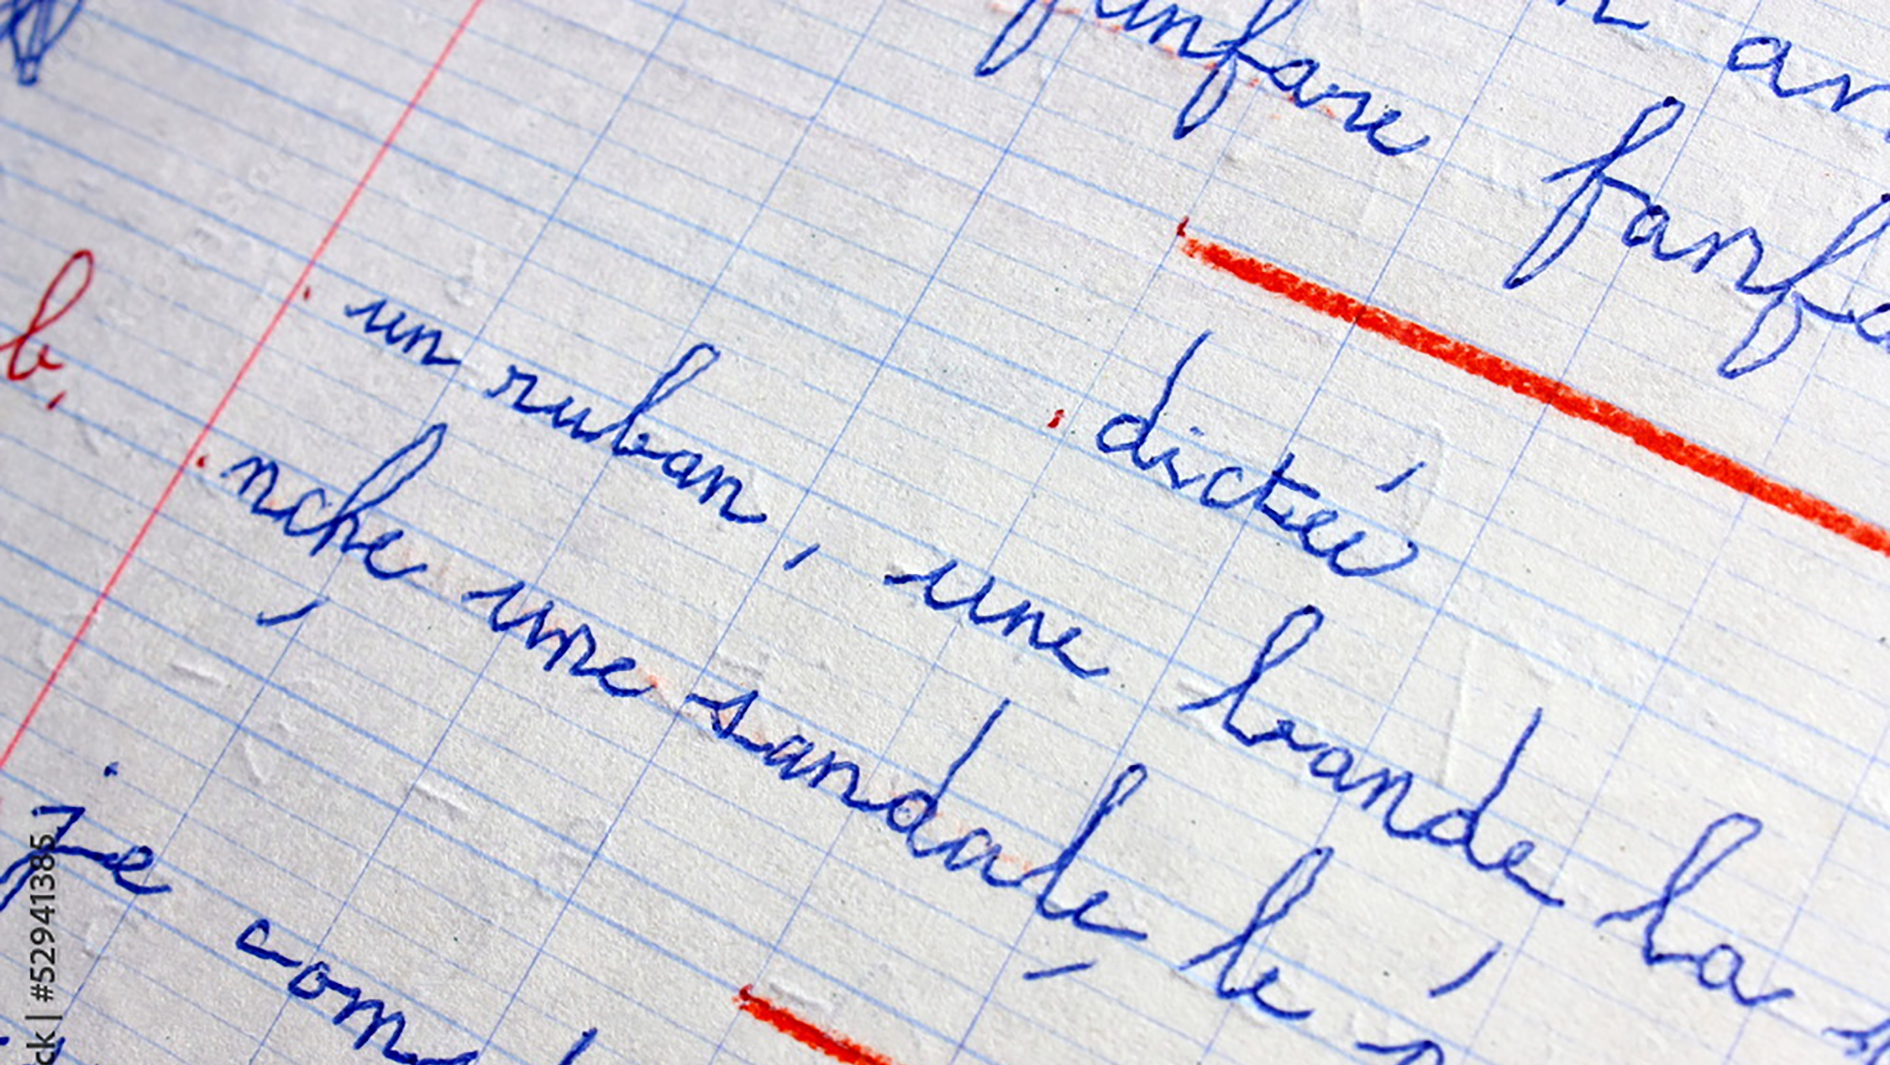 an
fanfare fanfa
dictée
b. un ruban, une bande, la
nche, une sandale, le
je com
#529941385